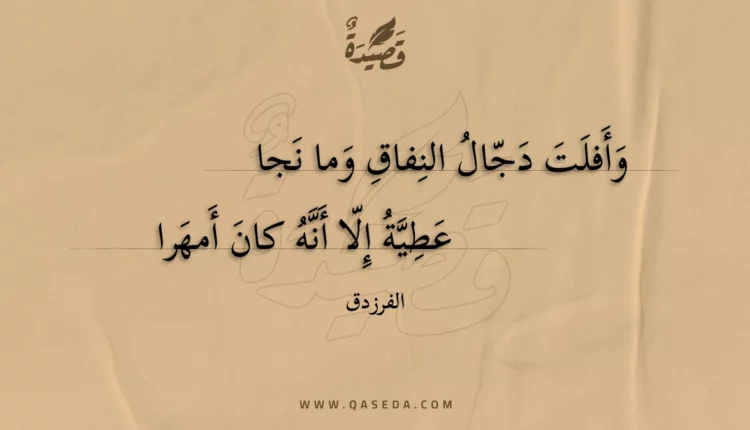 قَصِيدَةٌ
وَأَفلَتَ دَجّالُ النِفاقِ وَما نَجا
عَطِيَّةُ إِلّا أَنَّهُ كانَ أَمهَرا
الفرزدق
WWW.QASEDA.COM